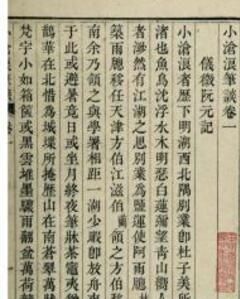 小滄浪筆談卷一
儀徵阮元記
小滄浪者歷下明湖西北隅別業卽杜子美所
渚也魚鳥沈浮水木明瑟白蓮彌望青山嚮人
者渺然有江湖之思別業爲鹽運使阿雨牕
築雨牕移任天津方伯江滋伯蘭領之方伯移
南余乃領之與學署相距一湖少暇卽放舟
于此或避暑竟日或坐月終夜筆牀茶竈夷
鵲華在北惜爲城堞所掩歷山在南蒼翠萬
梵宇小如箱篋或黑雲堆墨驟雨翻盆萬荷